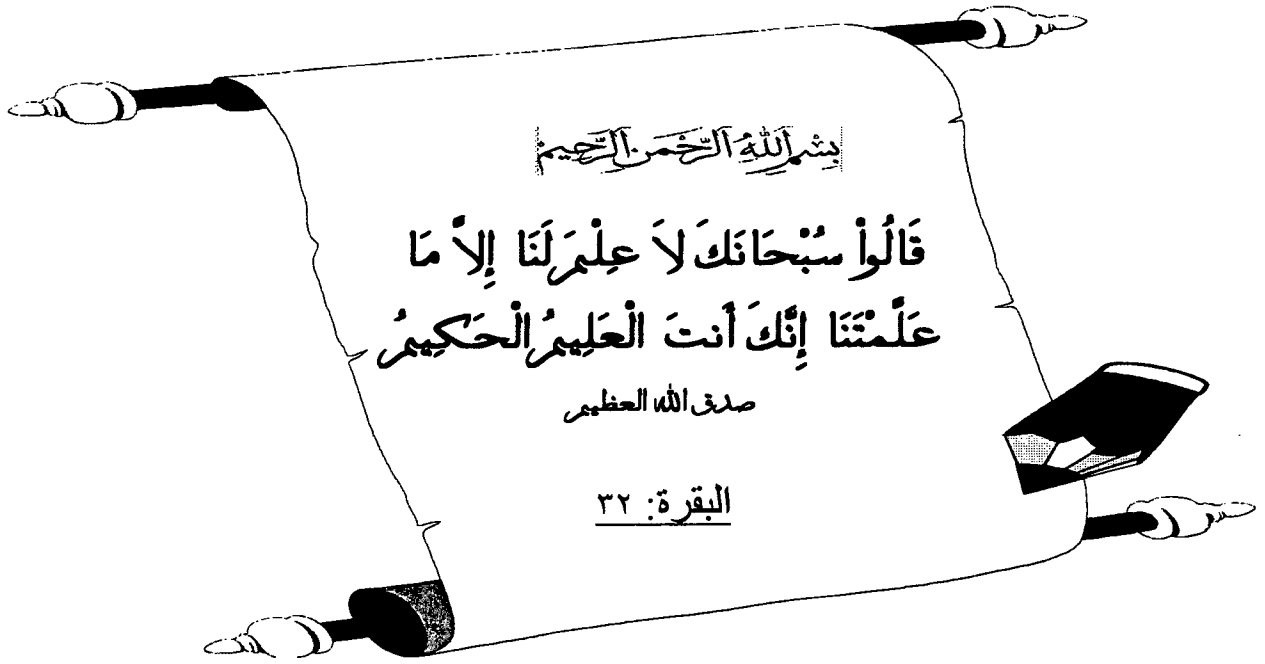 بِسْمِ اللَّهِ الرَّحْمَنِ الرَّحِيمِ
قَالُواْ سُبْحَانَكَ لاَ عِلْمَ لَنَا إِلاَّ مَا
عَلَّمْتَنَا إِنَّكَ أَنتَ الْعَلِيمُ الْحَكِيمُ
صدق الله العظيم
البقرة: ٣٢